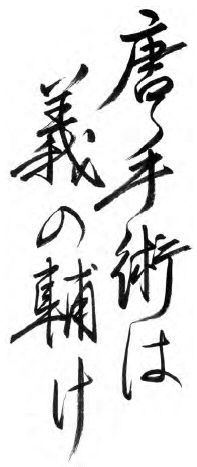 唐手術は
義の輔け